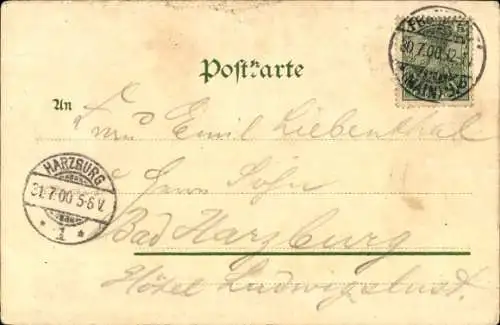 Postkarte
30.7.00.12
(MAIN)
An
Emil Liebenthal
HARZBURG
31.7.00 5-6 V.
* 1 *
Herrn Sohn
Bad Harzburg
Hôtel Ludwigslust.